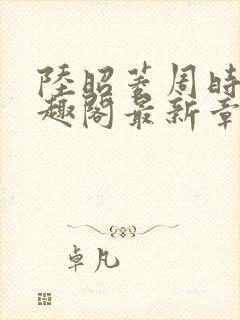 陸昭菱周時
趣閣最新章
卓凡